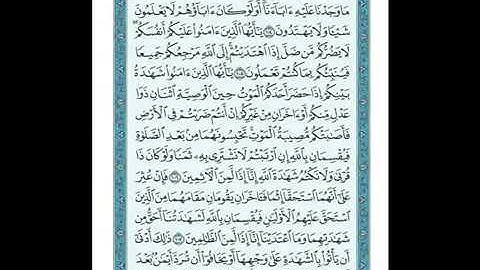 مَا وَجَدْنَا عَلَيْهِ ءَابَآءَنَآ أَوَلَوْ كَانَ ءَابَآؤُهُمْ لَا يَعْلَمُونَ
شَيْـًٔا وَلَا يَهْتَدُونَ ١٠٤ يَٰٓأَيُّهَا ٱلَّذِينَ ءَامَنُوا۟ عَلَيْكُمْ أَنفُسَكُمْ ۖ
لَا يَضُرُّكُم مَّن ضَلَّ إِذَا ٱهْتَدَيْتُمْ ۚ إِلَى ٱللَّهِ مَرْجِعُكُمْ جَمِيعًا
فَيُنَبِّئُكُم بِمَا كُنتُمْ تَعْمَلُونَ ١٠٥ يَٰٓأَيُّهَا ٱلَّذِينَ ءَامَنُوا۟ شَهَٰدَةُ
بَيْنِكُمْ إِذَا حَضَرَ أَحَدَكُمُ ٱلْمَوْتُ حِينَ ٱلْوَصِيَّةِ ٱثْنَانِ ذَوَا
عَدْلٍ مِّنكُمْ أَوْ ءَاخَرَانِ مِنْ غَيْرِكُمْ إِنْ أَنتُمْ ضَرَبْتُمْ فِى ٱلْأَرْضِ
فَأَصَٰبَتْكُم مُّصِيبَةُ ٱلْمَوْتِ ۚ تَحْبِسُونَهُمَا مِنۢ بَعْدِ ٱلصَّلَوٰةِ
فَيُقْسِمَانِ بِٱللَّهِ إِنِ ٱرْتَبْتُمْ لَا نَشْتَرِى بِهِۦ ثَمَنًا وَلَوْ كَانَ ذَا
قُرْبَىٰ ۙ وَلَا نَكْتُمُ شَهَٰدَةَ ٱللَّهِ إِنَّآ إِذًا لَّمِنَ ٱلْءَاثِمِينَ ١٠٦ فَإِنْ عُثِرَ
عَلَىٰٓ أَنَّهُمَا ٱسْتَحَقَّآ إِثْمًا فَـَٔاخَرَانِ يَقُومَانِ مَقَامَهُمَا مِنَ ٱلَّذِينَ
ٱسْتَحَقَّ عَلَيْهِمُ ٱلْأَوْلَيَٰنِ فَيُقْسِمَانِ بِٱللَّهِ لَشَهَٰدَتُنَآ أَحَقُّ مِن
شَهَٰدَتِهِمَا وَمَا ٱعْتَدَيْنَآ إِنَّآ إِذًا لَّمِنَ ٱلظَّٰلِمِينَ ١٠٧ ذَٰلِكَ أَدْنَىٰٓ
أَن يَأْتُوا۟ بِٱلشَّهَٰدَةِ عَلَىٰ وَجْهِهَآ أَوْ يَخَافُوٓا۟ أَن تُرَدَّ أَيْمَٰنٌۢ بَعْدَ